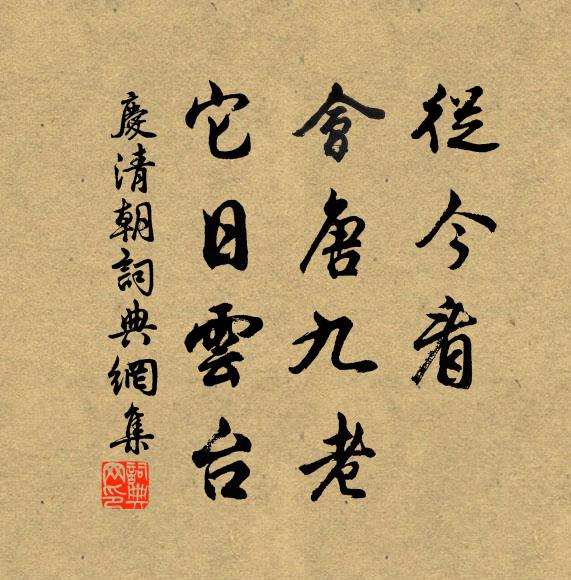 從今看
會唐九老
它日雲台
慶清朝詞典網集
詞典网印